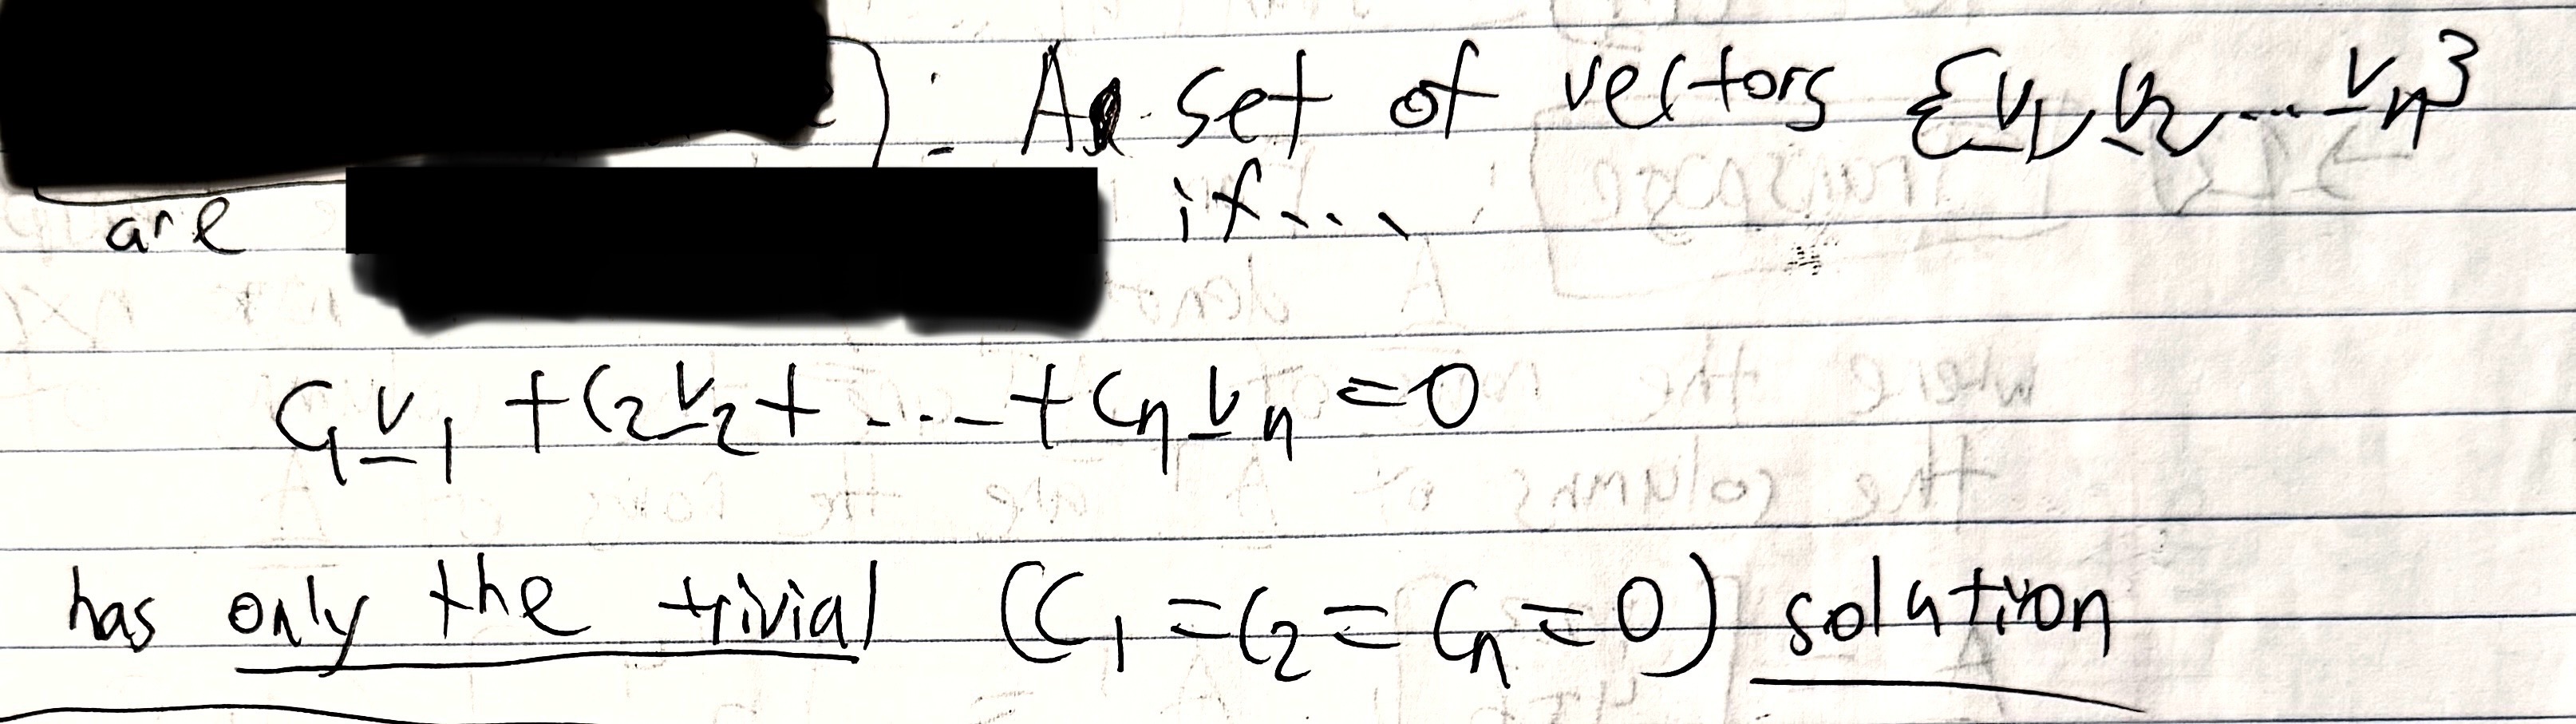 : A set of vectors {v₁, v₂, ... vₙ}
are if...
c₁v₁ + c₂v₂ + ... + cₙvₙ = 0
has only the trivial (C₁ = C₂ = Cₙ = 0) solution